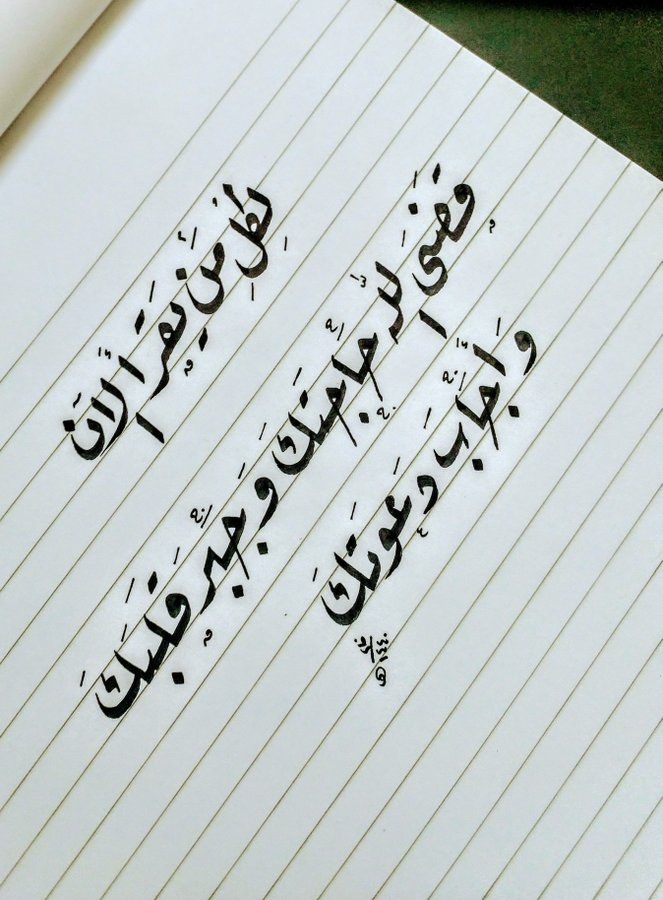 لِكُلِ مَنْ يَقرَأ الأَن
قَضَىَ اللهُ حَاجَتَكَ وَجَبَرَ قَلبَكَ
وَأَجَابَ دَعوَتَكَ
١٤٤٠هـ